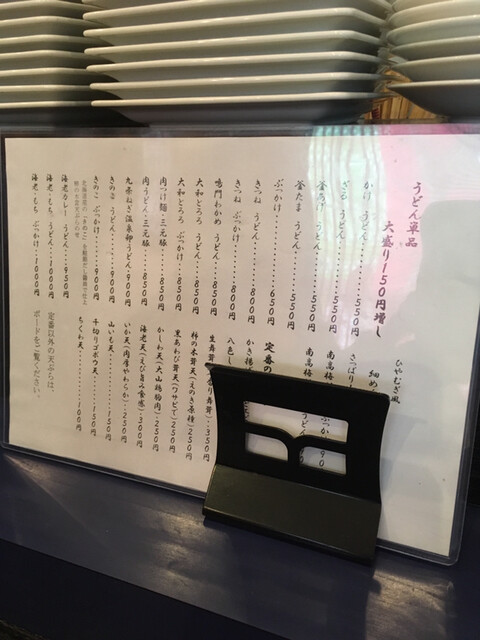 うどん単品
大盛り150円増し
かけ うどん・・・・・550円
ざる うどん・・・・・550円
釜あげ うどん・・・・550円
釜たま うどん・・・・550円
ぶっかけ・・・・・・・650円
きつね うどん・・・・800円
きつね ぶっかけ・・・800円
鳴門わかめ うどん・・850円
大和とろろ うどん・・850円
大和とろろ ぶっかけ・850円
肉つけ麺・三元豚・・・850円
肉うどん・三元豚・・・850円
九条ねぎ温泉卵うどん・900円
きのこ うどん・・・・900円
きのこ ぶっかけ・・・900円
海老カレー うどん・・950円
海老・もち うどん・1000円
海老・もち ぶっかけ・1000円
ひやむぎ風
細め
さっぱり
南高梅
南高梅
定番の
かき揚
八色し
生舞茸
舞茸)・350円
柿の木茸天(えのき原種)250円
黒あわび茸天(ワサビで)250円
かしわ天(大山鶏胸肉)・250円
海老天(えび旨み食感)・300円
いか天(肉厚やわらか)・250円
山いも天・・・・・・・150円
千切りゴボウ天・・・・150円
ちくわ天・・・・・・・100円
定番以外の天ぷらは、
ボードをご覧ください。